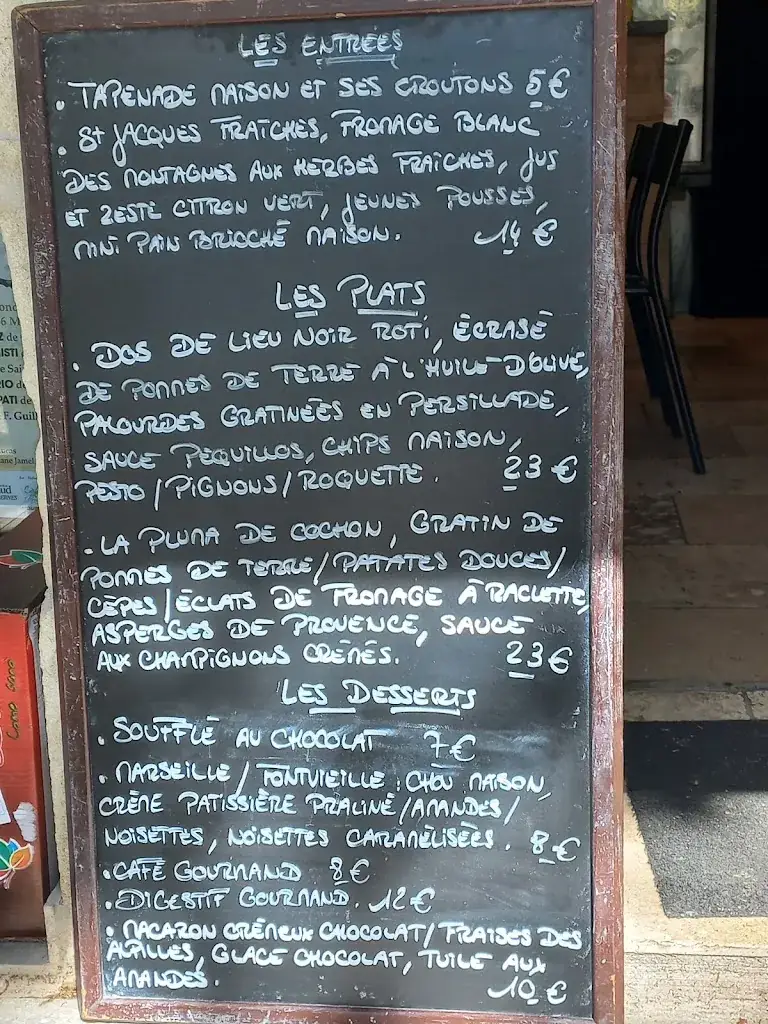 LES ENTRÉES
• TAPENADE MAISON ET SES CROUTONS 5€
• St JACQUES FRAÎCHES, FROMAGE BLANC
DES MONTAGNES AUX HERBES FRAÎCHES, JUS
ET ZESTE CITRON VERT, JEUNES POUSSES,
MINI PAIN BRIOCHÉ MAISON. 14 €
LES PLATS
• DOS DE LIEU NOIR ROTI, ÉCRASÉ
DE POMMES DE TERRE À L'HUILE D'OLIVE,
PALOURDES GRATINÉES EN PERSILLADE,
SAUCE PEQUILLOS, CHIPS MAISON,
PESTO/PIGNONS/ROQUETTE. 23 €
• LA PLUMA DE COCHON, GRATIN DE
POMMES DE TERRE/PATATES DOUCES/
CÈPES/ÉCLATS DE FROMAGE À RACLETTE,
ASPERGES DE PROVENCE, SAUCE
AUX CHAMPIGNONS CRÉMÉS. 23€
LES DESSERTS
• SOUFFLÉ AU CHOCOLAT 7€
• MARSEILLE/FONTVIEILLE : CHOU MAISON,
CRÈME PATISSIÈRE PRALINÉ/AMANDES/
NOISETTES, NOISETTES CARAMÉLISÉES. 8€
• CAFÉ GOURMAND 8€
• DIGESTIF GOURMAND. 12€
• MACARON CRÉMEUX CHOCOLAT/FRAISES DES
ALPILLES, GLACE CHOCOLAT, TUILE AUX
AMANDES. 10 €